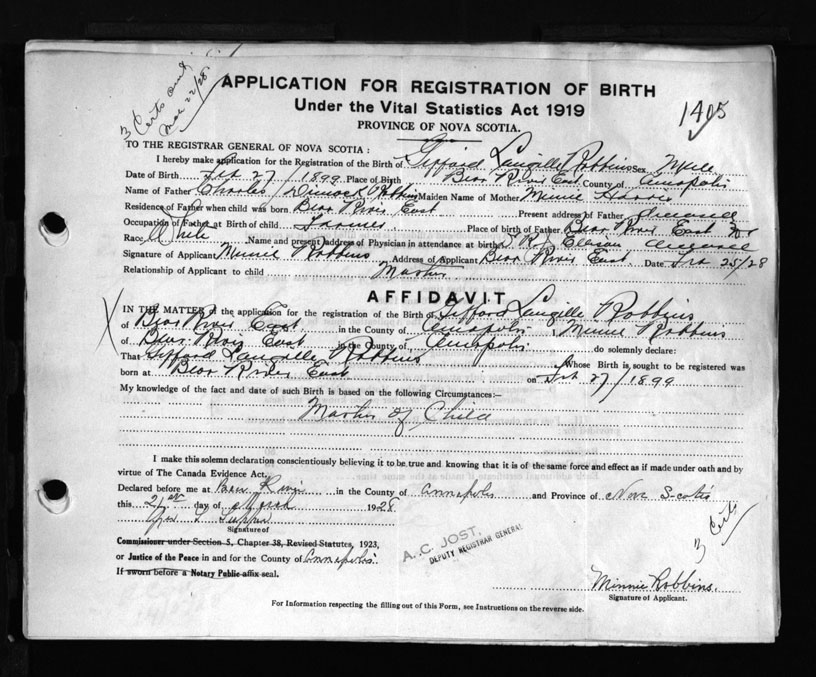 3 Certs
22/28
APPLICATION FOR REGISTRATION OF BIRTH
Under the Vital Statistics Act 1919
1405
PROVINCE OF NOVA SCOTIA.
TO THE REGISTRAR GENERAL OF NOVA SCOTIA :
I hereby make application for the Registration of the Birth of Gifford Langille Robbins Sex Male
Date of Birth Feb 27 / 1899 Place of Birth Bear River East County of Annapolis
Name of Father Charles Dimock Robbins Maiden Name of Mother Minnie
Residence of Father when child was born Bear River East Present address of Father
Occupation of Father at Birth of child Farmer Place of birth of Father Bear River East
Race White Name and present address of Physician in attendance at birth
Signature of Applicant Minnie Robbins Address of Applicant Bear River East. Date 25/28
Relationship of Applicant to child Mother
AFFIDAVIT
IN THE MATTER of the application for the registration of the Birth of Gifford Langille Robbins
of Bear River East in the County of Annapolis I, Minnie Robbins
of Bear River East in the County of Annapolis do solemnly declare:
That Gifford Langille Robbins Whose Birth is sought to be registered was
born at Bear River East on Feb 27 / 1899
My knowledge of the fact and date of such Birth is based on the following Circumstances:—
Mother of Child
I make this solemn declaration conscientiously believing it to be true and knowing that it is of the same force and effect as if made under oath and by
virtue of The Canada Evidence Act,
Declared before me at Bear River in the County of Annapolis and Province of Nova Scotia
this 21st day of March 1928
Signature of
Commissioner under Section 5, Chapter 38, Revised Statutes, 1923,
or Justice of the Peace in and for the County of Annapolis
If sworn before a Notary Public affix seal.
A. C. JOST,
DEPUTY REGISTRAR GENERAL
3 Certs
Minnie Robbins.
Signature of Applicant.
For Information respecting the filling out of this Form, see Instructions on the reverse side.